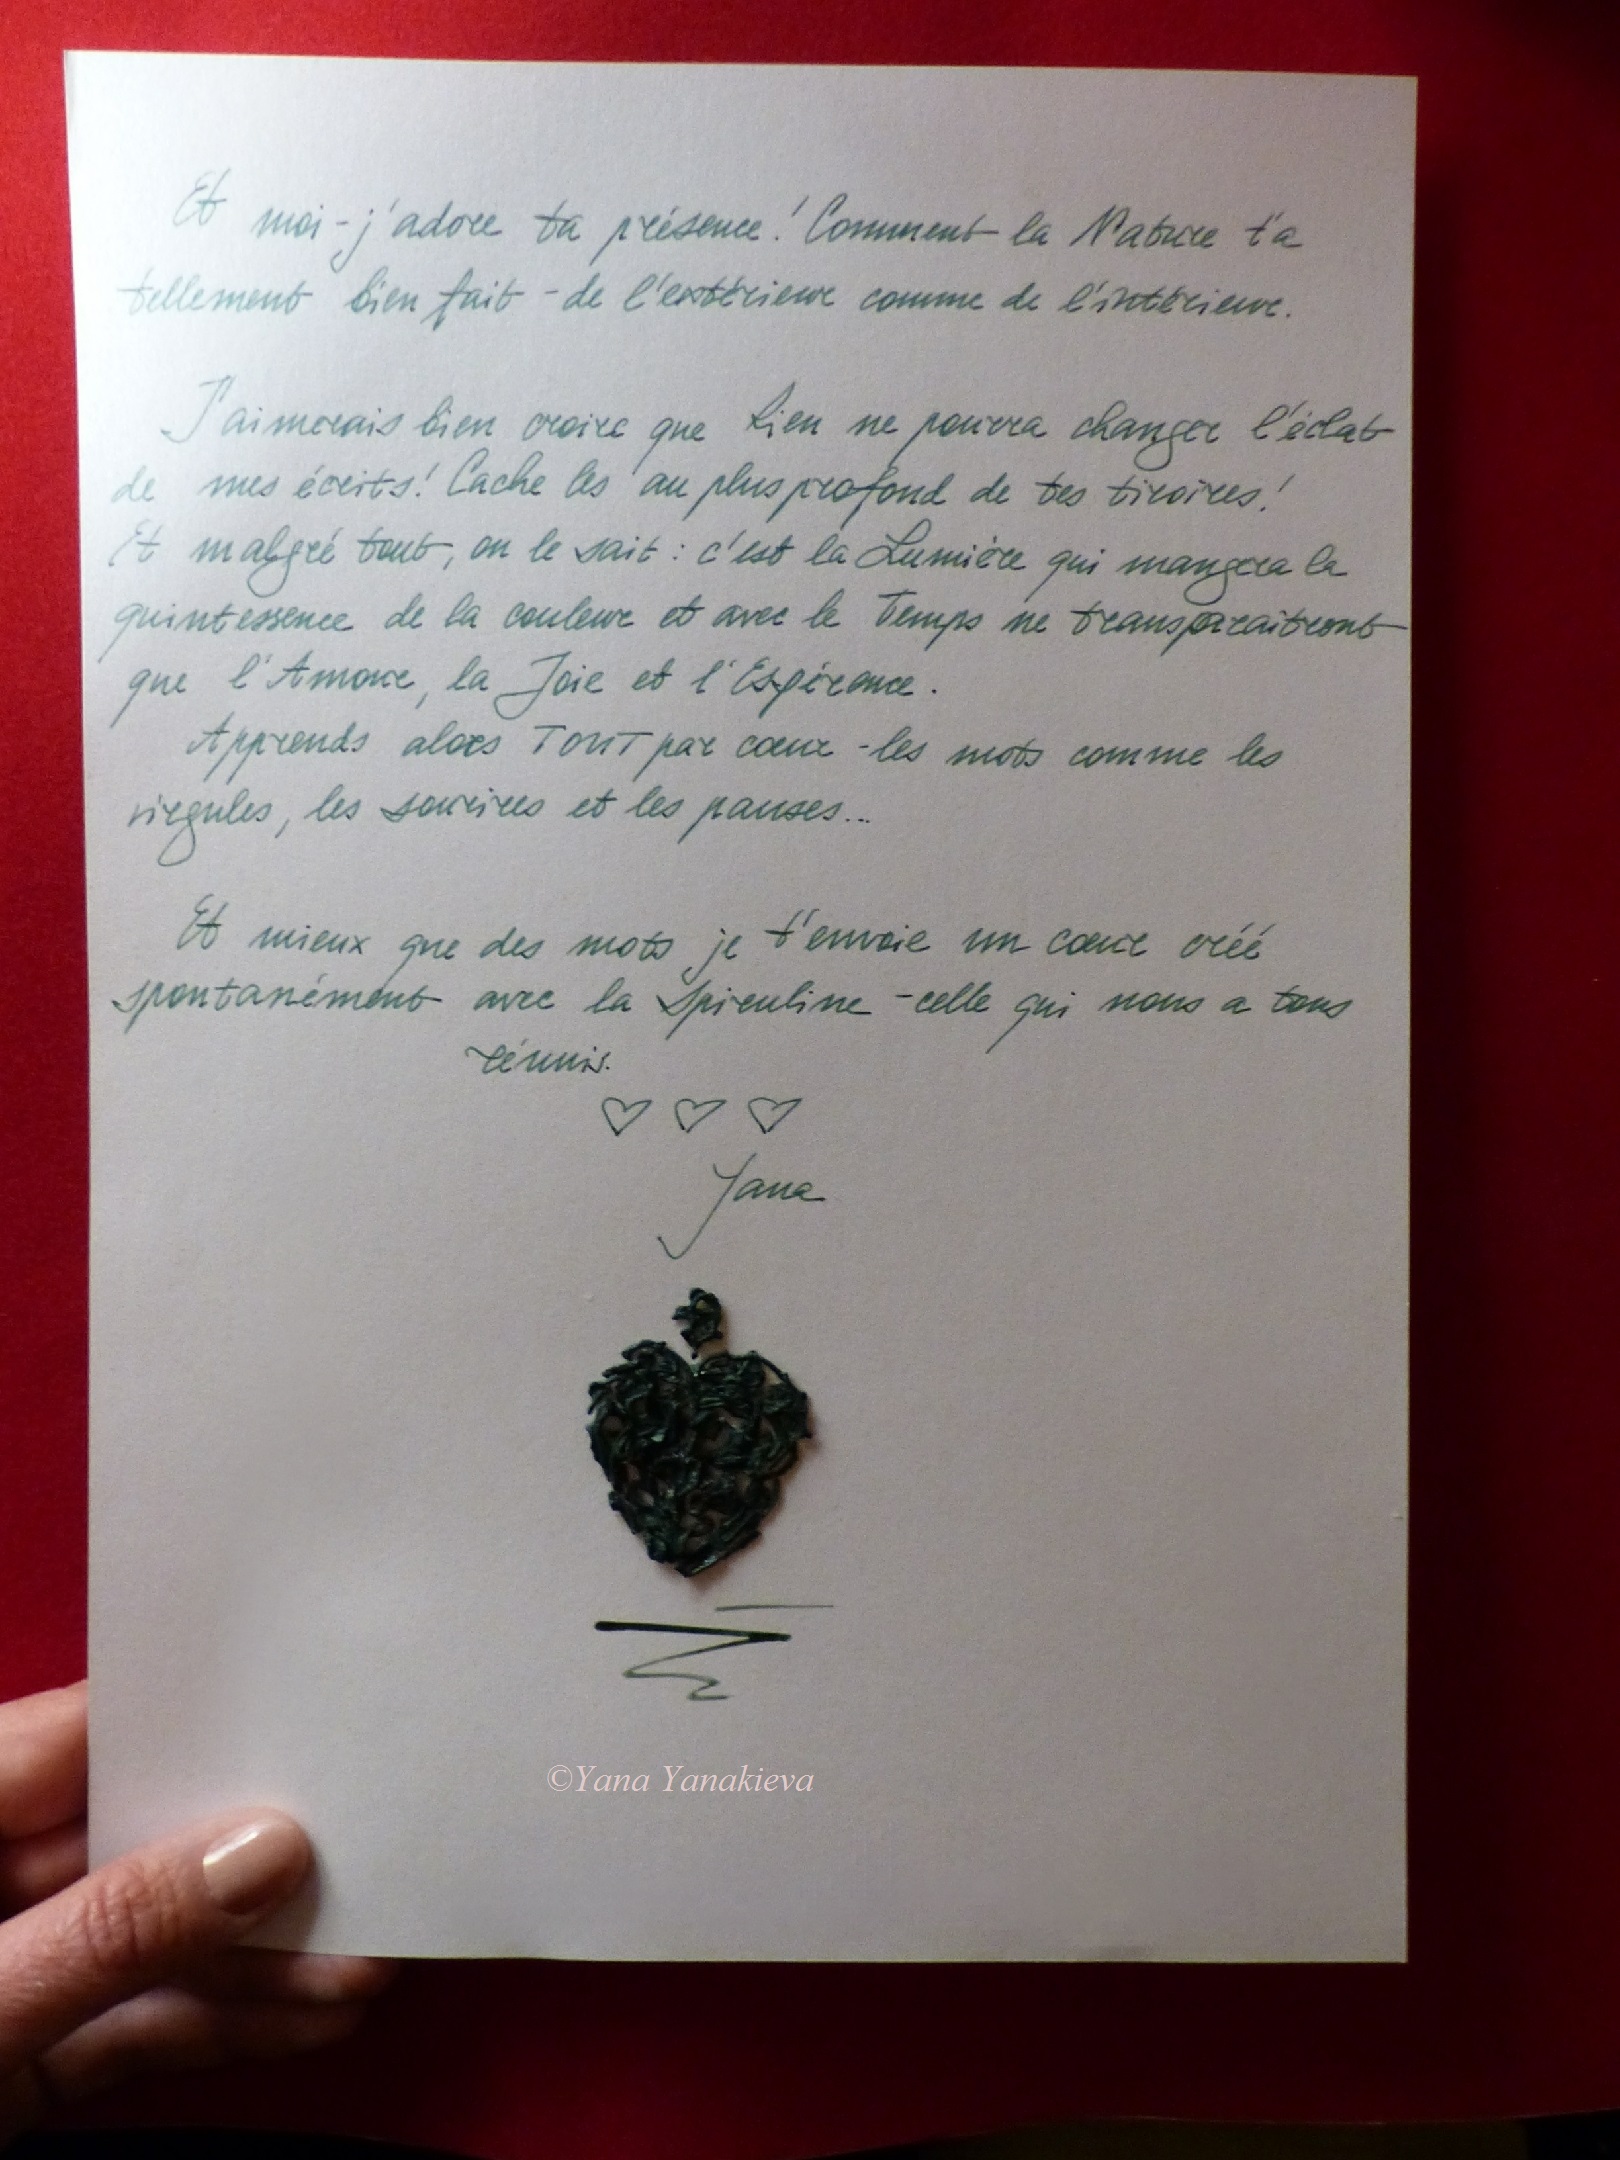 Et moi - j'adore ta présence! Comment la Nature t'a
tellement bien fait - de l'extérieur comme de l'intérieur.
J'aimerais bien croire que Rien ne pourra changer l'éclat
de mes écrits! Cache les au plus profond de tes tiroires!
Et malgré tout, on le sait: c'est la Lumière qui mangera la
quintessence de la couleur et avec le Temps ne transparaitront
que l'Amour, la Joie et l'Espérance.
Apprends alors TOUT par cœur - les mots comme les
virgules, les sourires et les pauses...
Et mieux que des mots je t'envoie un cœur créé
spontanément avec la spiruline - celle qui nous a tous
réunis.
♡ ♡ ♡
Yana
©Yana Yanakieva